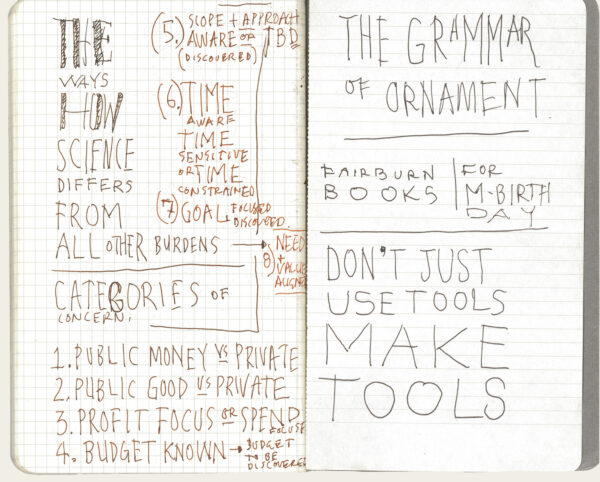 THE
WAYS
HOW
SCIENCE
DIFFERS
FROM
ALL OTHER BURDENS
CATEGORIES OF
CONCERN.
1. PUBLIC MONEY VS PRIVATE
2. PUBLIC GOOD VS PRIVATE
3. PROFIT FOCUS OR SPEND
FOCUSED
4. BUDGET KNOWN → BUDGET
TO BE
DISCOVERED
(5.) SCOPE + APPROACH
AWARE OR TBD
(DISCOVERED)
(6.) TIME
AWARE
TIME
SENSITIVE
OR TIME
CONSTRAINED
(7) GOAL FOCUSED
DISCOVERED.
8) NEED
+
VALUE
ALIGNED
THE GRAMMAR
OF ORNAMENT.
FAIRBURN
BOOKS
FOR
M-BIRTH
DAY
DON'T JUST
USE TOOLS
MAKE
TOOLS